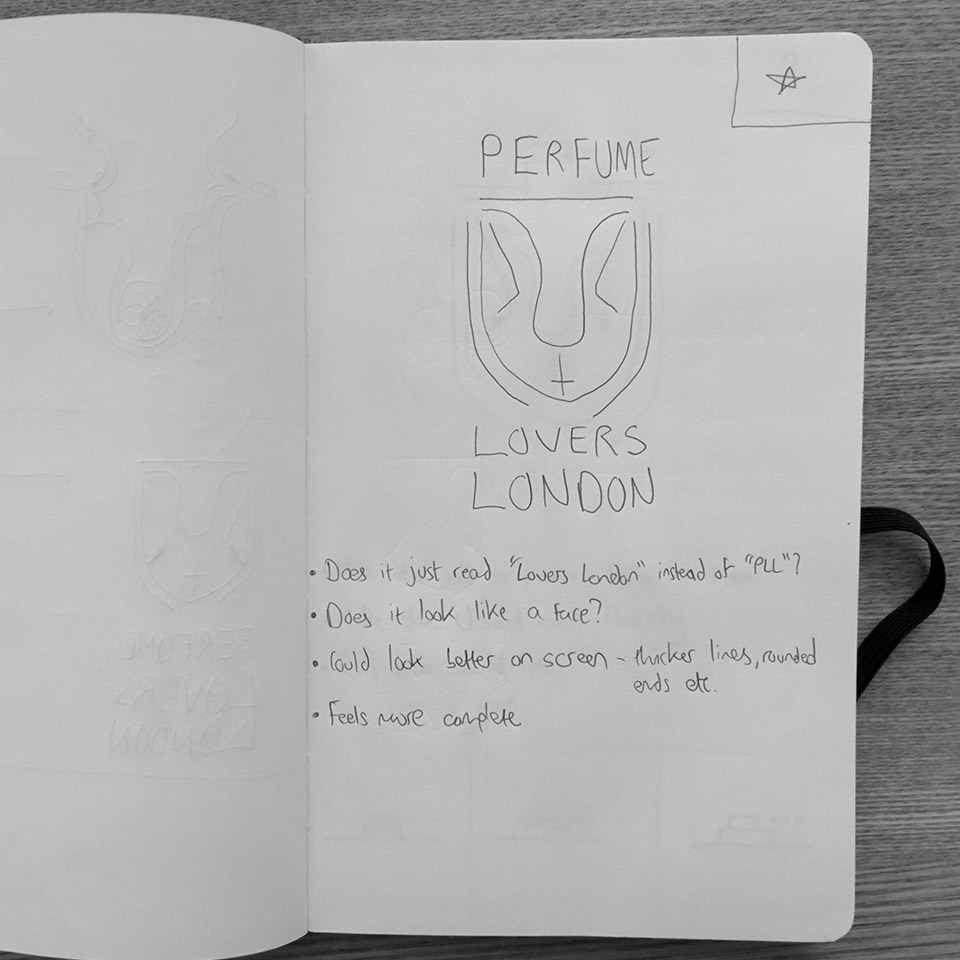 PERFUME
LOVERS
LONDON
• Does it just read "Lovers London" instead of "PLL"?
• Does it look like a face?
• Could look better on screen - thicker lines, rounded
ends etc.
• Feels more complete